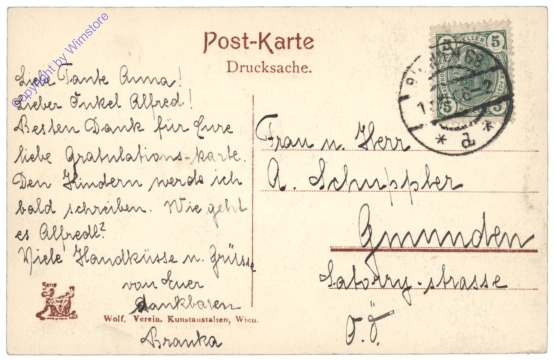 Post-Karte
Drucksache.
Liebe Tante Anna!
Lieber Onkel Alfred!
Besten Dank für Eure
liebe Gratulations-karte.
Den Kindern werde ich
bald schreiben. Wie geht
es Alfredl?
Viele Handküsse u. Grüsse
von Euer
dankbaren
Branka
Frau u. Herr
A. Schuppler
Gmunden
Satory-strasse
O.Ö.
5 5
5 5
Wolf. Verein. Kunstaustalten, Wien.
Copyright by Wimstore